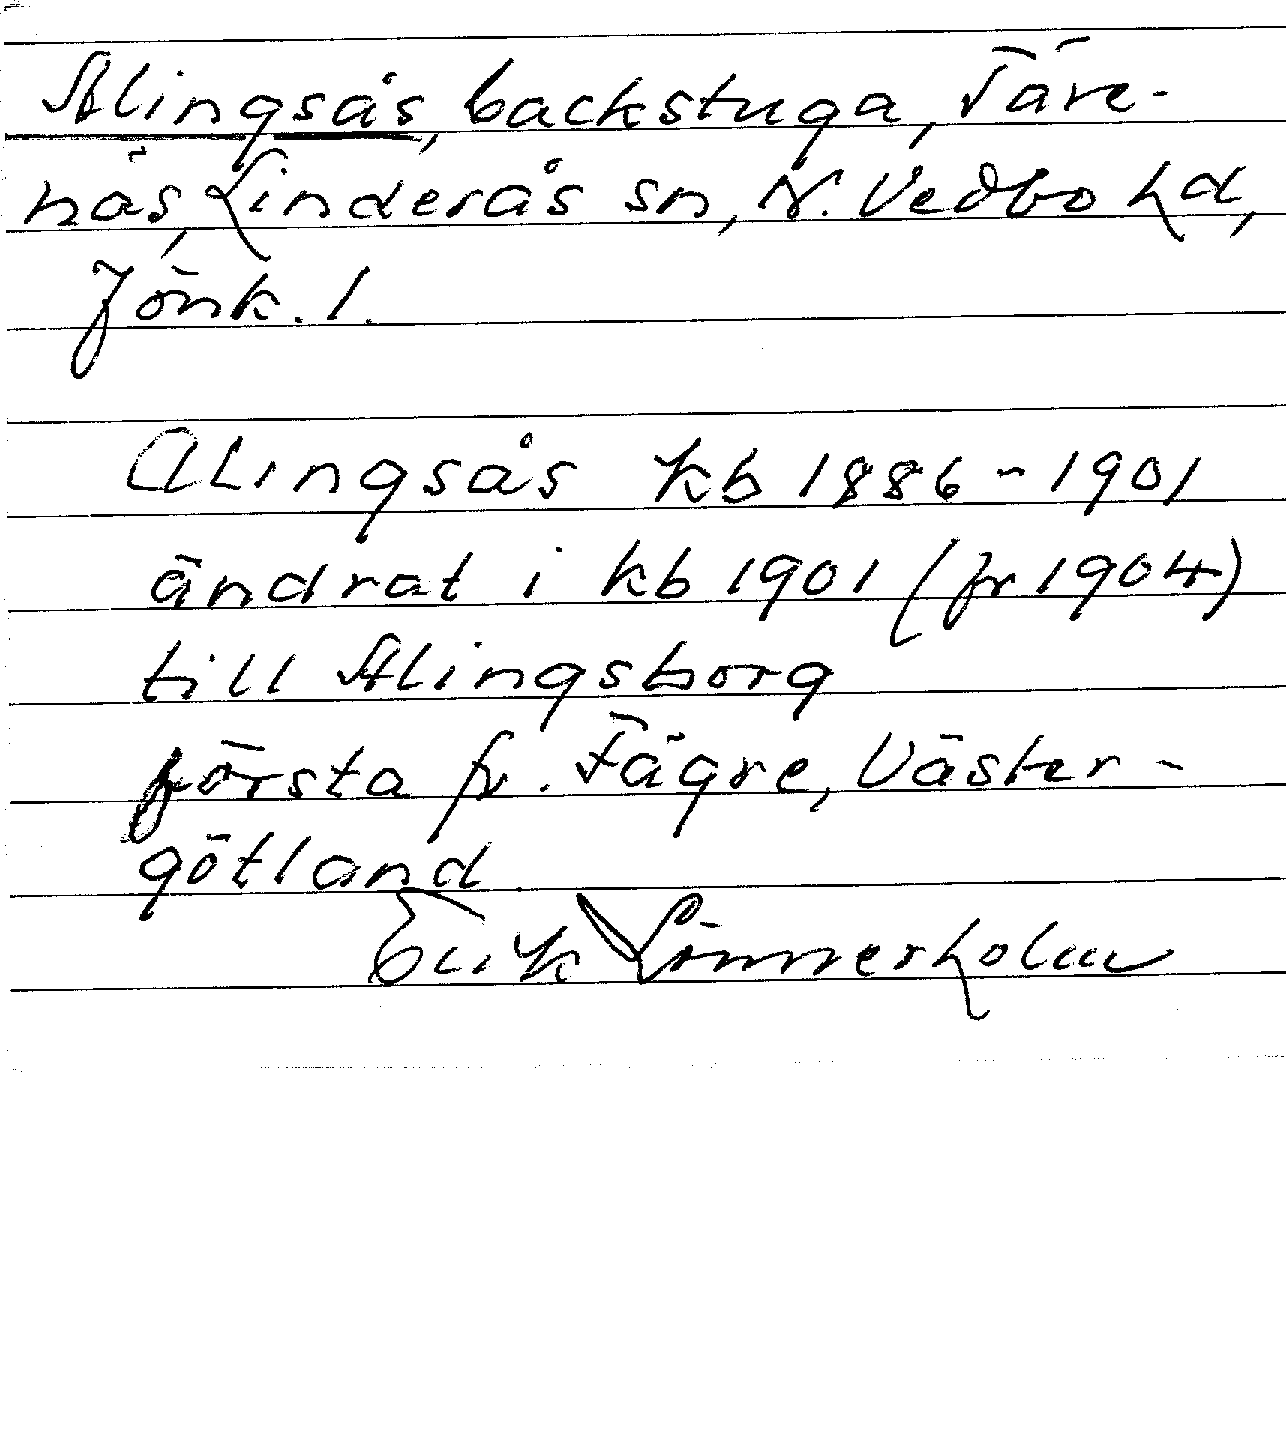 Alingsås, backstuga, Täre-
näs, Linderås sn, N. Vedbo hd,
Jönk. l.
Alingsås kb 1886-1901
ändrat i kb 1901 (fr 1904)
till Alingsborg
första fr. Fägre, Väster-
götland
Erik Lönnerholm